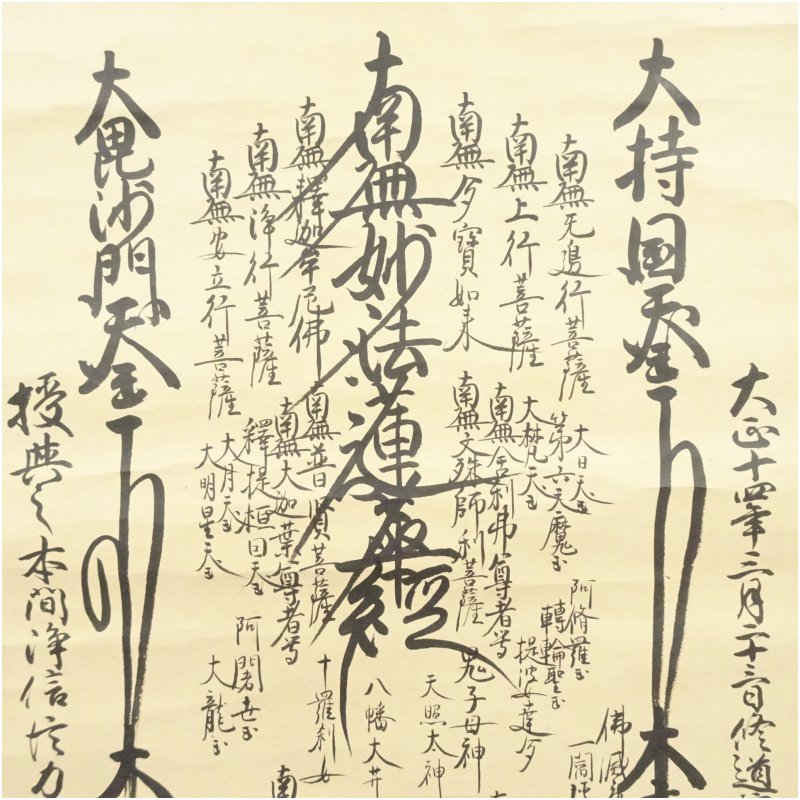 大正十四年三月二十三日修道
大持国天王
南無无邊行菩薩
南無上行菩薩
南無多寶如来
南無妙法蓮華経
南無釋迦牟尼佛
南無浄行菩薩
南無安立行菩薩
大毘沙門天王
大日天王
第六天魔王
大梵天王
南無舎利弗尊者等
南無文殊師利菩薩
南無普賢菩薩
南無大迦葉尊者等
釋提桓因天王
大月天王
大明星天王
阿脩羅王
轉輪聖王
提婆達多
鬼子母神
天照太神
八幡大井
十羅刹女
阿闍世王
大龍王
佛滅
一閻
大
南
大
授與之本間浄信
力